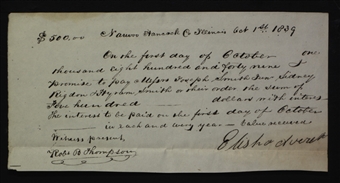 $500.00 Nauvoo Hancock Co Illinois Oct 1st 1839
On the first day of October one
thousand eight hundred and forty nine I
promise to pay Messrs Joseph Smith Junr Sidney
Rigdon & Hyrum Smith or their order the sum of
Five hundred dollars with interest
The interest to be paid on the first day of October
in each and every year — value received
Witness present
Elisha Averett
Robt B Thompson